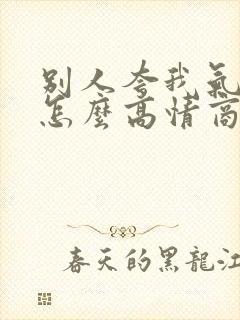 别人夸我氣
怎麼高情商
春天的黑龍江